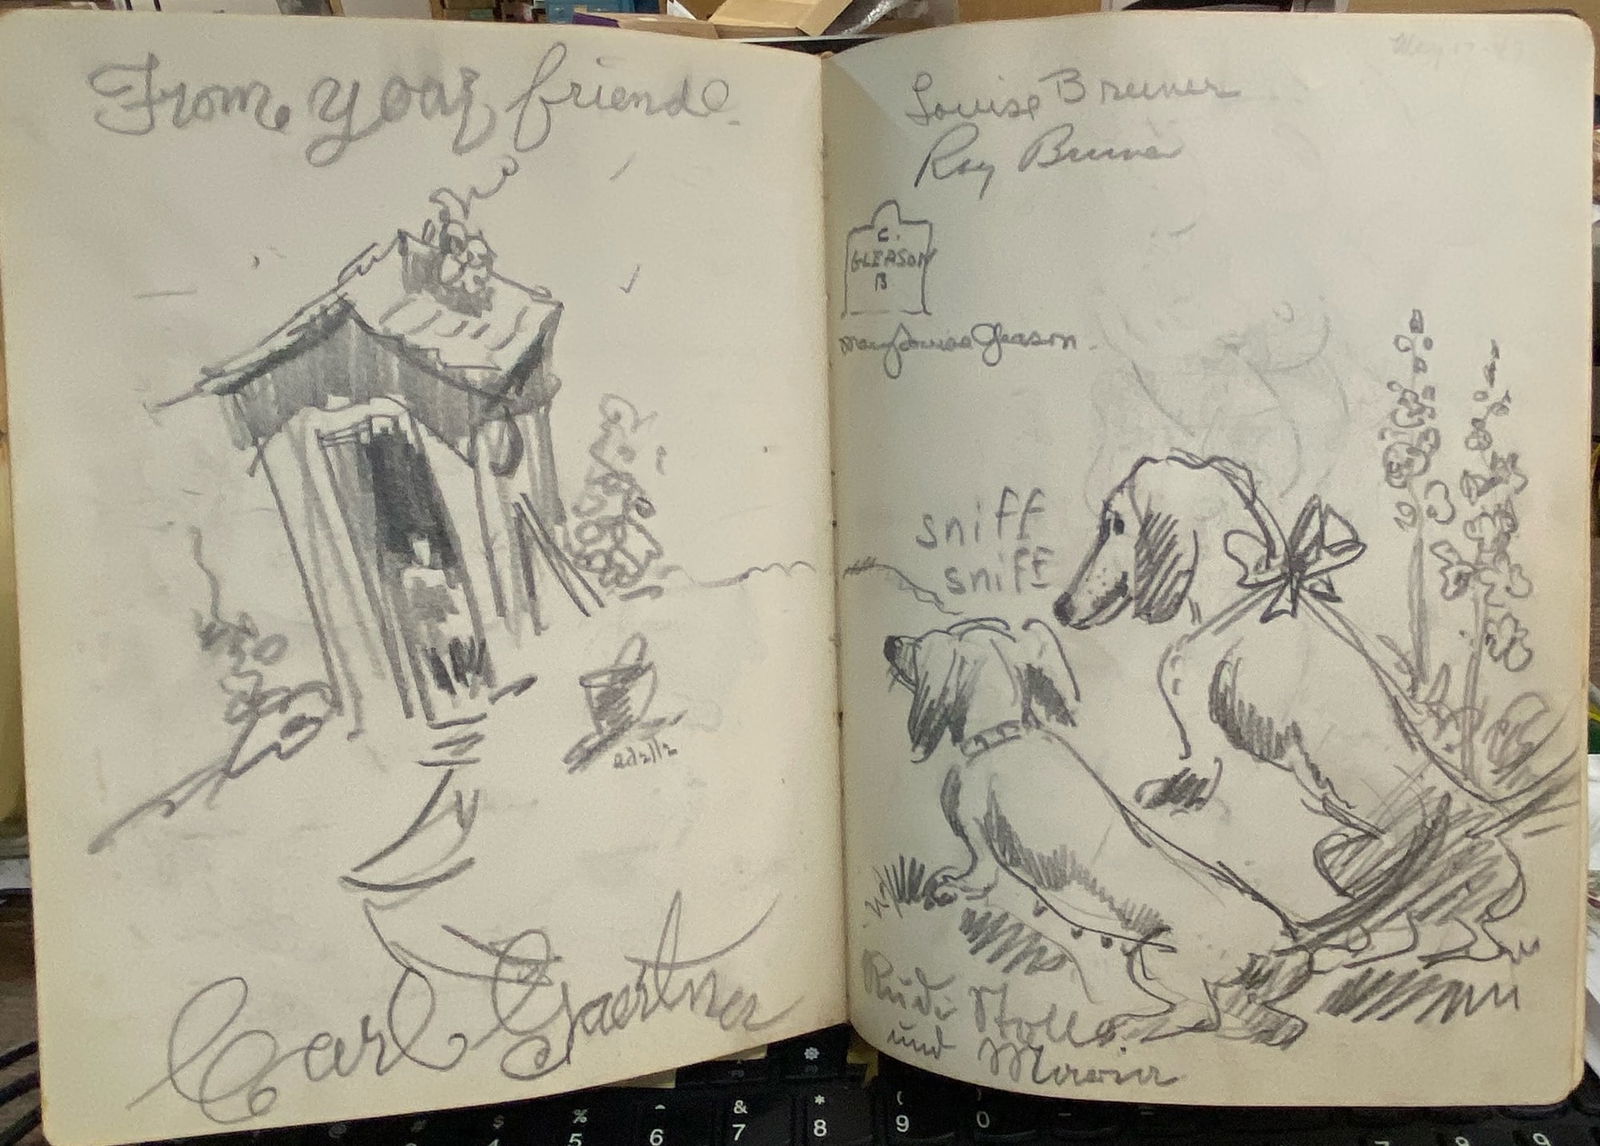 From your friend
Carl Gaertner
Louise Bruner
Ray Bruner
C.
GLEASON
B
Mary Louise Gleason
sniff
sniff
Rudi Stoll
und